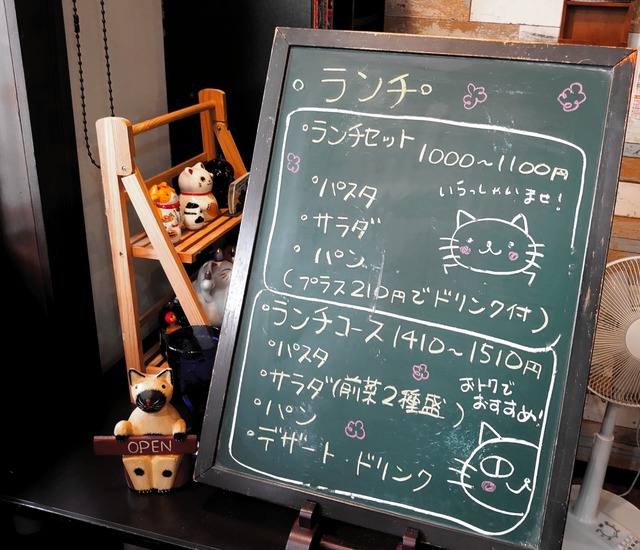 ○ランチ○
○ランチセット 1000〜1100円
○パスタ いらっしゃいませ!
○サラダ
○パン
(プラス210円でドリンク付)
○ランチコース 1410〜1510円
○パスタ
○サラダ(前菜2種盛) おトクで
おすすめ!
○パン
○デザート・ドリンク
OPEN